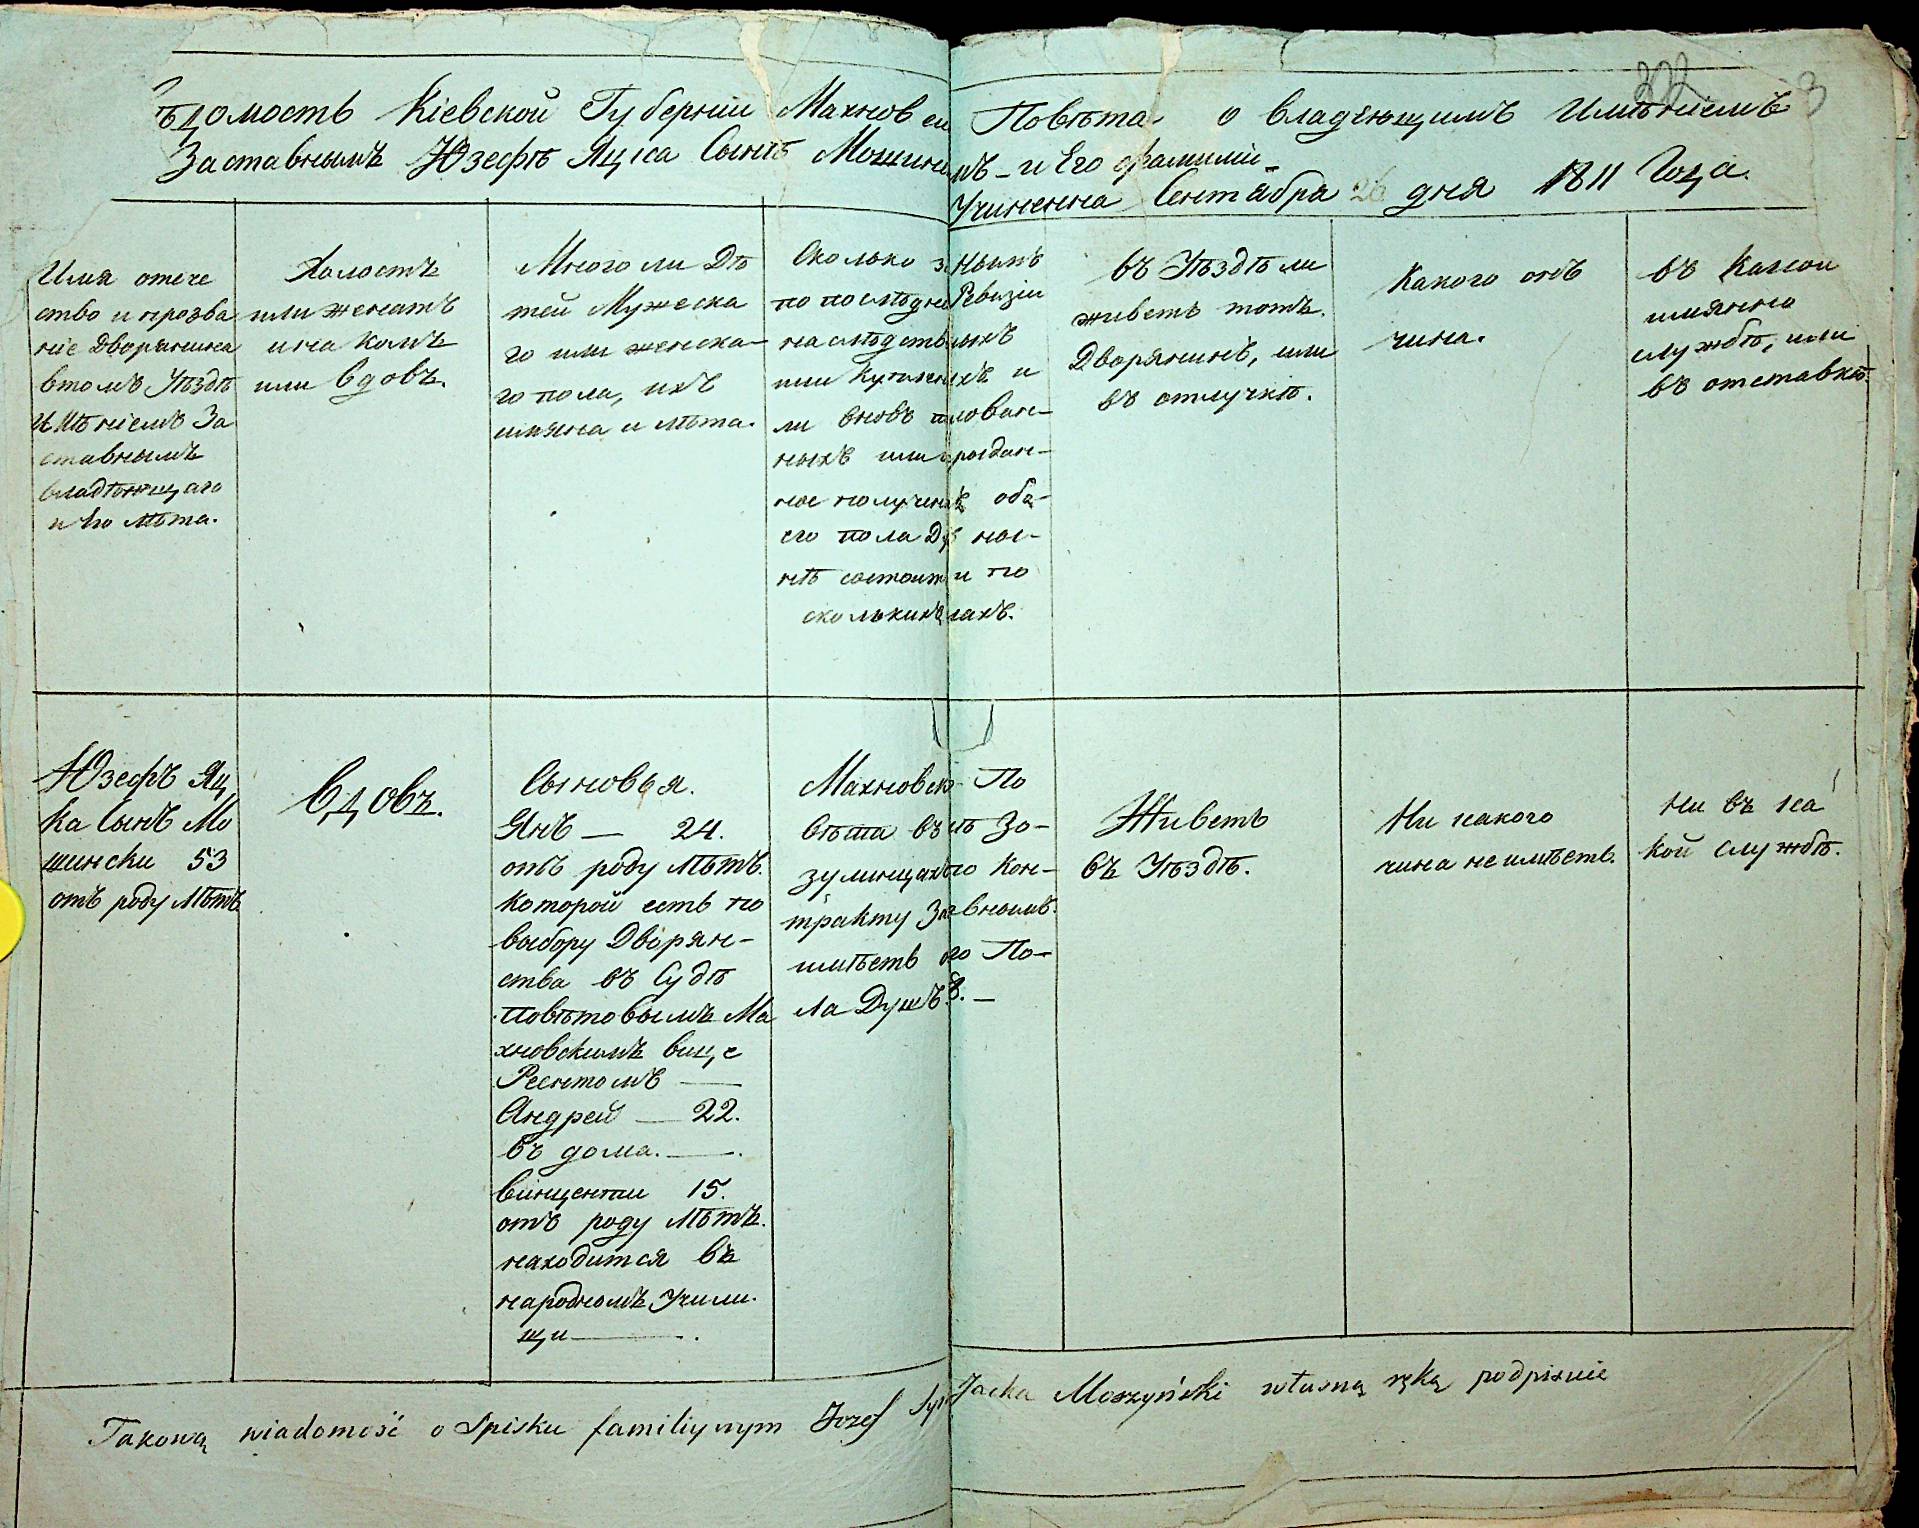 ѣдомость Кіевской Губерніи Махнов Повѣта о владѣющимъ Имѣніемъ
Заставнымъ Юзефѣ Яцка Сынѣ Мошин и Его фамиліи
Учиненна Сентября 26 дня 1811 Года.
Имя отече
ство и прозва
ніе Дворянина
втомъ Уѣздѣ
Имѣніемъ За
ставнымъ
владѣющаго
и Его лѣта.
Холостъ
или женатъ
ина комъ
или вдовъ.
Много ли Дѣ
тей Мужеска
го или женска-
го пола, ихъ
имяна и лѣта.
Сколько за нымъ
по послѣдне Ревизіи
наслѣдств ыхъ
или Купленыхъ и
ли вновь п лован-
ныхъ или ражdан-
ное получен оба-
его пола Д нос-
нѣ состоит и по
сколькихъ лахъ.
въ Уѣздѣ ли
живетъ тотъ.
Дворянинъ, или
въ отлучкѣ.
Какого онъ
чина.
въ Какои
имянно
службѣ, или
въ отставкѣ.
Юзефъ Яц
ка Сынъ Мо
шински 53
отъ роду лѣтъ
вдовъ.
Сыновья.
Янъ — 24.
отъ роду лѣтъ.
Которой есть по
выбору Дворян-
ства въ Судѣ
Повѣтовымъ Ма
хновскимъ вице
Реентомъ —
Андрей — 22.
въ дома. —.
винцентии 15.
отъ роду лѣтъ.
находится въ
народномъ Учили
щи —.
Махновск По
вѣта въ лѣ Зо-
зулинцахъ по Кон-
тракту За вномъ.
имѣетъ го По-
ла Душъ 8. —
Живетъ
въ Уѣздѣ.
Ни какого
чина неимѣетъ.
Ни въ ка
кой службѣ.
Takową wiadomość o Spisku familiynym Jozef Syn Jacka Moszyński własną ręką podpisuie